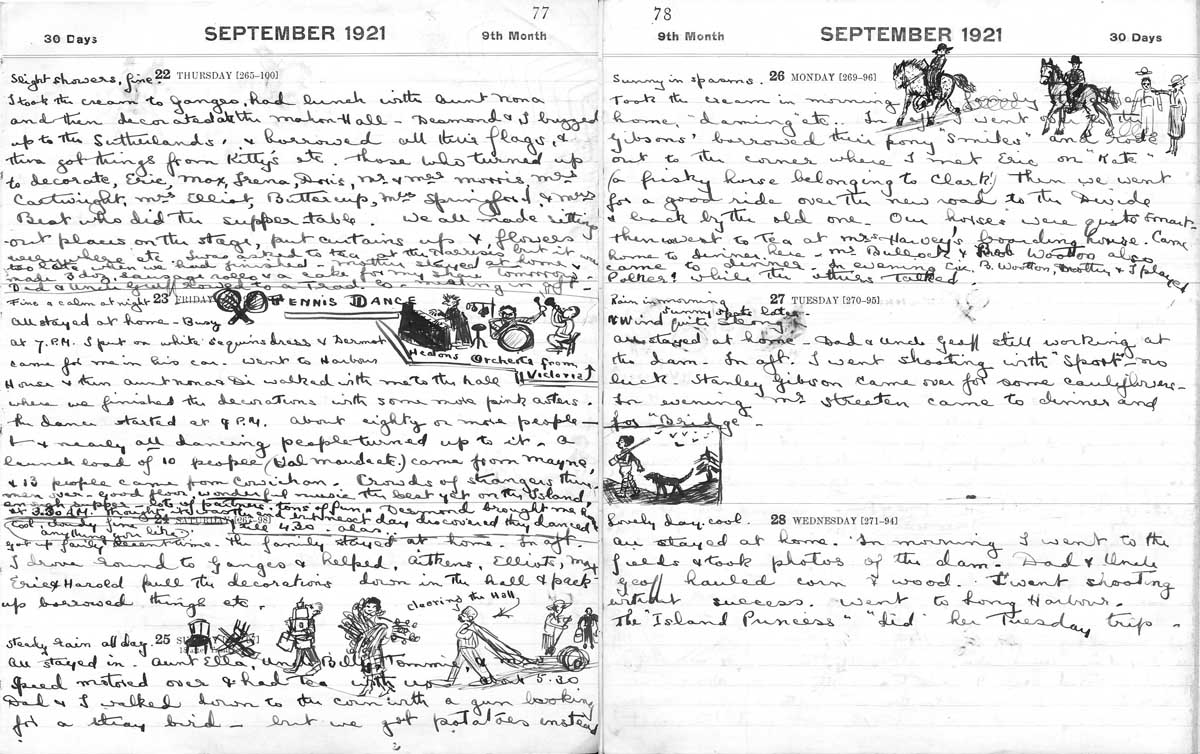 77
30 Days
SEPTEMBER 1921
9th Month
Slight showers, fine. 22 THURSDAY [265-100]
I took the cream to Ganges, had lunch with Aunt Nona
and then decorated at the Mahon Hall - Desmond & I buzzed
up to the Sutherlands', & borrowed all their flags, &
then got things from Kitty's etc. Those who turned up
to decorate, Eric, Max, Irena, Doris, Mr & Mrs Morris, Mrs
Cartwright, Mrs Elliot, Buttercup, Mrs Springford & Mrs
Best who did the supper table. We all made sitting
out places on the stage, put curtains up & flowers
everywhere etc. I was asked to tea at the but it was
too late when we had finished - Mother stayed at home &
made 8 doz sausage rolls & a cake for my share tomorrow.
Dad & Uncle Geoff to a Trad. Co. meeting in aft.
23 FRIDAY
TENNIS DANCE
Fine & calm at night
All stayed at home - Busy
at 7 P.M. I put on white sequins dress & Dermot
came for me in his car. Went to Harbour
Heatons Orchestra from Victoria
House & then Aunt Nona & Di walked with me to the hall
where we finished the decorations with some more pink asters.
The dance started at 9 P.M. About eighty or more people -
& nearly all dancing people turned up to it. A
launch load of 10 people (Val Maude etc.) came from Mayne,
& 13 people came from Cowichan. Crowds of strangers then
men over - good floor, wonderful music, the best yet on the Island,
enough supper - lots of partners, tons of fun. Desmond brought me back
at 3.30 A.M. next day discovered they danced
till 4.30 - alas.
24 SATURDAY [267-98]
Cool, cloudy, fine
anything you like
got up fairly decent time. The family stayed at home. In aft.
I drove round to Ganges & helped, Aitkens, Elliots, Max
Eric & Harold pull the decorations down in the hall & pack
up borrowed things etc.
clearing the Hall
Steady rain all day. 25
All stayed in. Aunt Ella, Billy, Tommie, & Mrs
Speed motored over & had tea with us. 5.30
Dad & I walked down to the corn with a gun looking
for a stray bird - but we got potatoes instead
78
9th Month
SEPTEMBER 1921
30 Days
Sunny in spasms. 26 MONDAY [269-96]
Took the cream in morning
home, "darning" etc. In I went
Gibsons' borrowed their pony "Smiles" and rode
out to the corner where I met Eric on "Kate"
(a frisky horse belonging to Clark) Then we went
for a good ride over the new road to the Divide
& back by the old one. Our horses were quite smart -
then went to tea at Mrs Harvey's boarding house. Came
home to dinner here - Mr Bullock & Bob Wootton also
came to dinner. In evening Eric, B. Wootton, Mother & I played
Poker! while the others talked.
Rain in morning 27 TUESDAY [270-95]
Sunny spots later -
& Wind quite strong
All stayed at home - Dad & Uncle Geoff still working at
the dam. In aft. I went shooting with "Sport" no
luck. Stanley Gibson came over for some cauliflowers -
In evening Mr Streeten came to dinner and
for "Bridge" -
Lovely day, cool. 28 WEDNESDAY [271-94]
All stayed at home. In morning I went to the
fields & took photos of the dam. Dad & Uncle
Geoff hauled corn & wood. I went shooting
without success. Went to Long Harbour.
The "Island Princess" "did" her Tuesday trip -